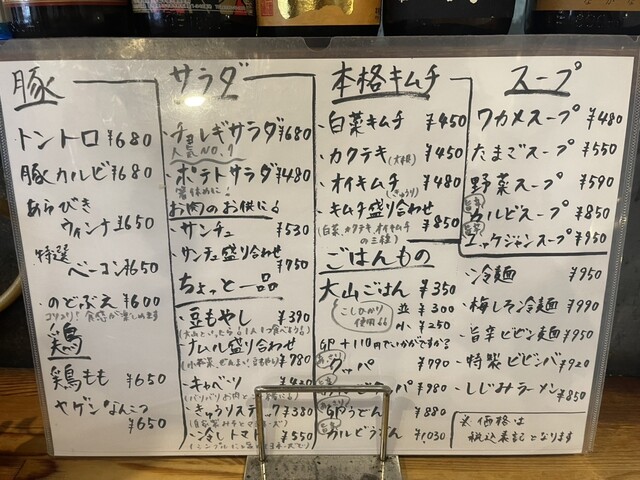 豚
トントロ ¥680
豚カルビ ¥680
あらびき
ウィンナ ¥650
特選
ベーコン ¥650
・のどぶえ ¥600
コリコリ！食感が楽しめます
鶏
鶏もも ¥650
ヤゲンなんこつ
¥650
サラダ
・チョレギサラダ ¥680
人気NO.1
・ポテトサラダ ¥480
箸休めに！
お肉のお供に
・サンチュ ¥530
・サンチュ盛り合わせ
¥750
ちょっと一品
・豆もやし ¥390
・ナムル盛り合わせ
¥780
・キャベツ
・きゅうりスティック ¥380
・冷しトマト ¥550
本格キムチ
・白菜キムチ ¥450
・カクテキ(大根) ¥450
・オイキムチ ¥480
(きゅうり)
・キムチ盛り合わせ
(白菜、カクテキ、オイキムチ ¥850
の三種)
ごはんもの
大山ごはん 大 ¥350
こしひかり 並 ¥300
使用 小 ¥250
卵 +110円でいかがですか？
クッパ ¥790
パ ¥980
うどん ¥880
カルビうどん ¥1,030
スープ
ワカメスープ ¥480
たまごスープ ¥550
野菜スープ ¥590
カルビスープ ¥850
ユッケジャンスープ ¥950
・冷麺 ¥950
・梅しそ冷麺 ¥990
・旨辛ビビン麺 ¥950
・特製ビビンバ ¥920
・しじみラーメン ¥850
※価格は
税込表記となります